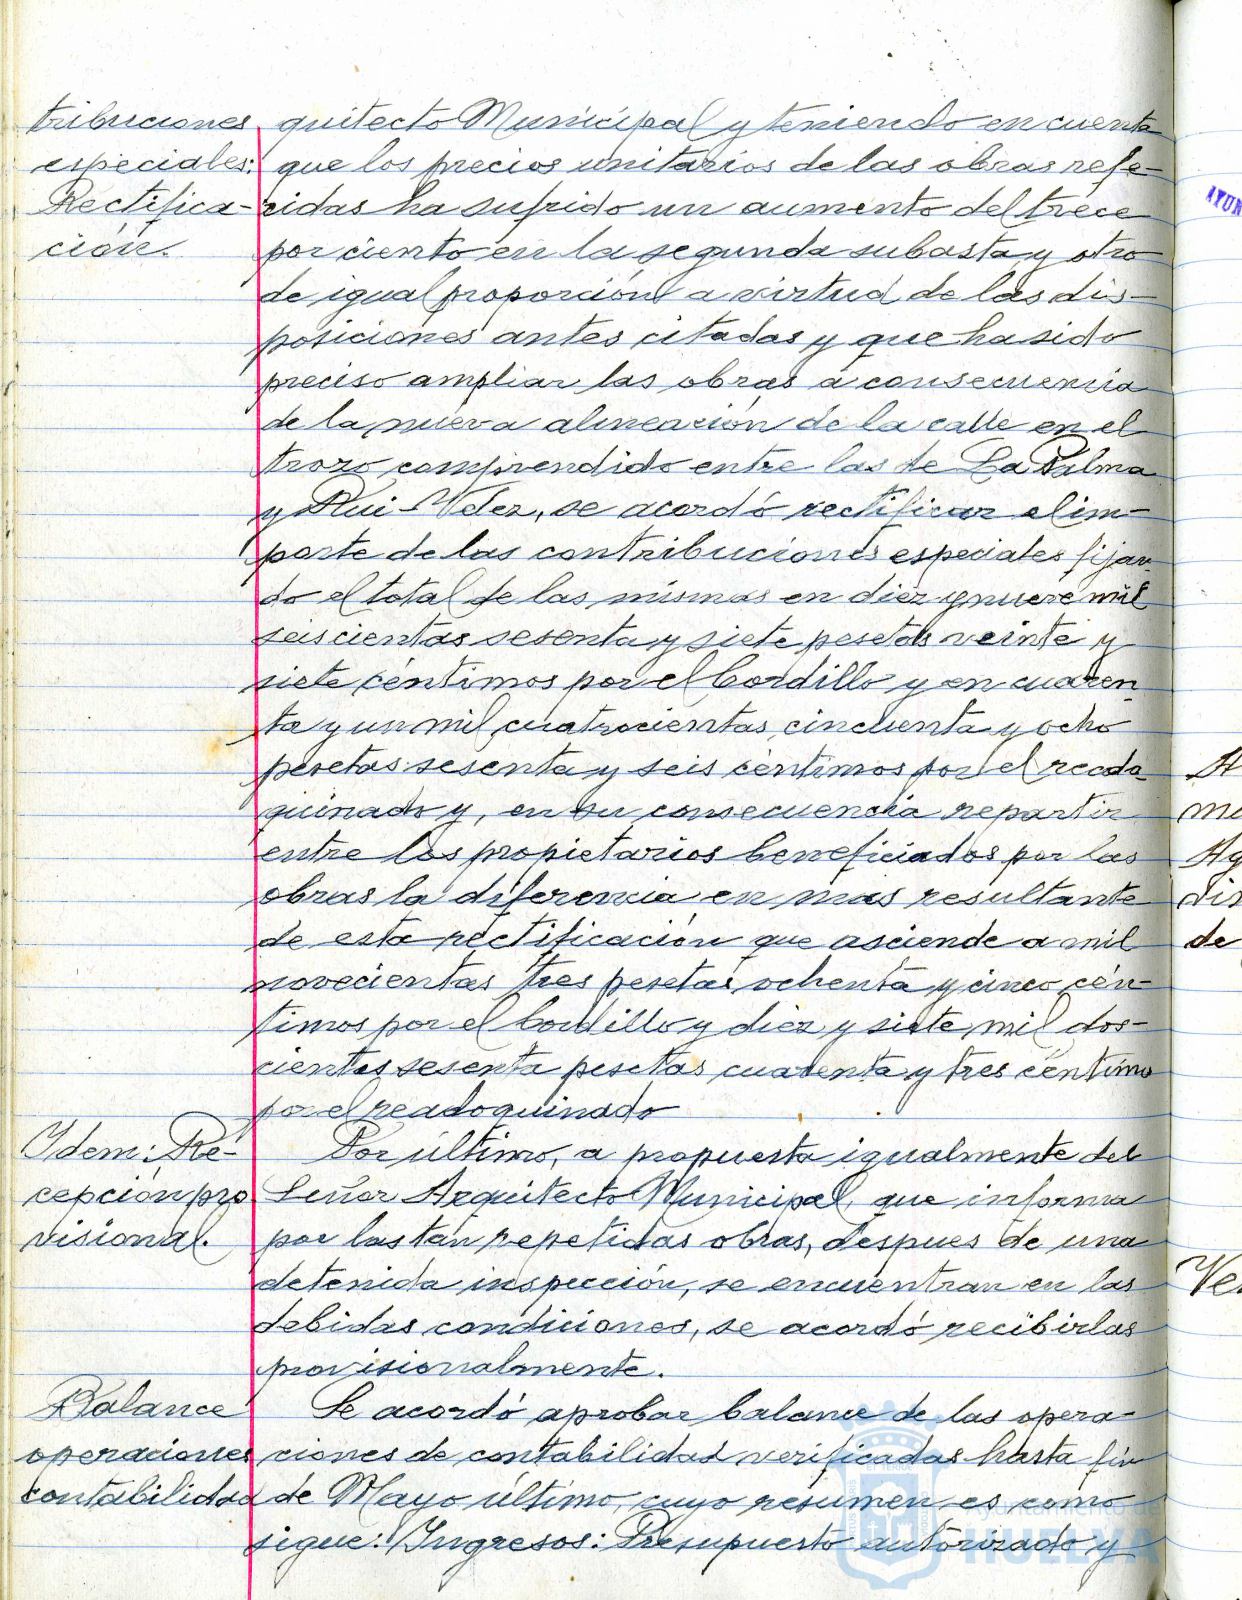 tribuciones
especiales:
Rectifica-
ción.
quitecto Municipal y teniendo en cuenta
que los precios unitarios de las obras refe-
ridas ha sufrido un aumento del trece
por ciento en la segunda subasta y otro
de igual proporción a virtud de las dis-
posiciones antes citadas y que ha sido
preciso ampliar las obras a consecuencia
de la nueva alineación de la calle en el
trozo comprendido entre las de La Palma
y Rui-Velez, se acordó rectificar el im-
porte de las contribuciones especiales fijan-
do el total de las mismas en diez y nueve mil
seiscientas sesenta y siete pesetas veinte y
siete céntimos por el bordillo y en cuaren-
ta y un mil cuatrocientas cincuenta y ocho
pesetas sesenta y seis céntimos por el reado-
quinado y, en su consecuencia repartir
entre los propietarios beneficiados por las
obras la diferencia en mas resultante
de esta rectificación que asciende a mil
novecientas tres pesetas ochenta y cinco cén-
timos por el bordillo y diez y siete mil dos-
cientas sesenta pesetas cuarenta y tres céntimo
por el readoquinado
Idem: Re-
cepción pro
visional.
Por último, a propuesta igualmente del
Señor Arquitecto Municipal, que informa
por las tan repetidas obras, despues de una
detenida inspección, se encuentran en las
debidas condiciones, se acordó recibirlas
provisionalmente.
Balance
operaciones
contabilidad
Se acordó aprobar balance de las opera-
ciones de contabilidad verificadas hasta fin
de Mayo último, cuyo resumen es como
sigue: Ingresos: Presupuesto autorizado y
AYUN
A
mu
Ag
dis
de
Ve
Ayuntamiento de
HUELVA